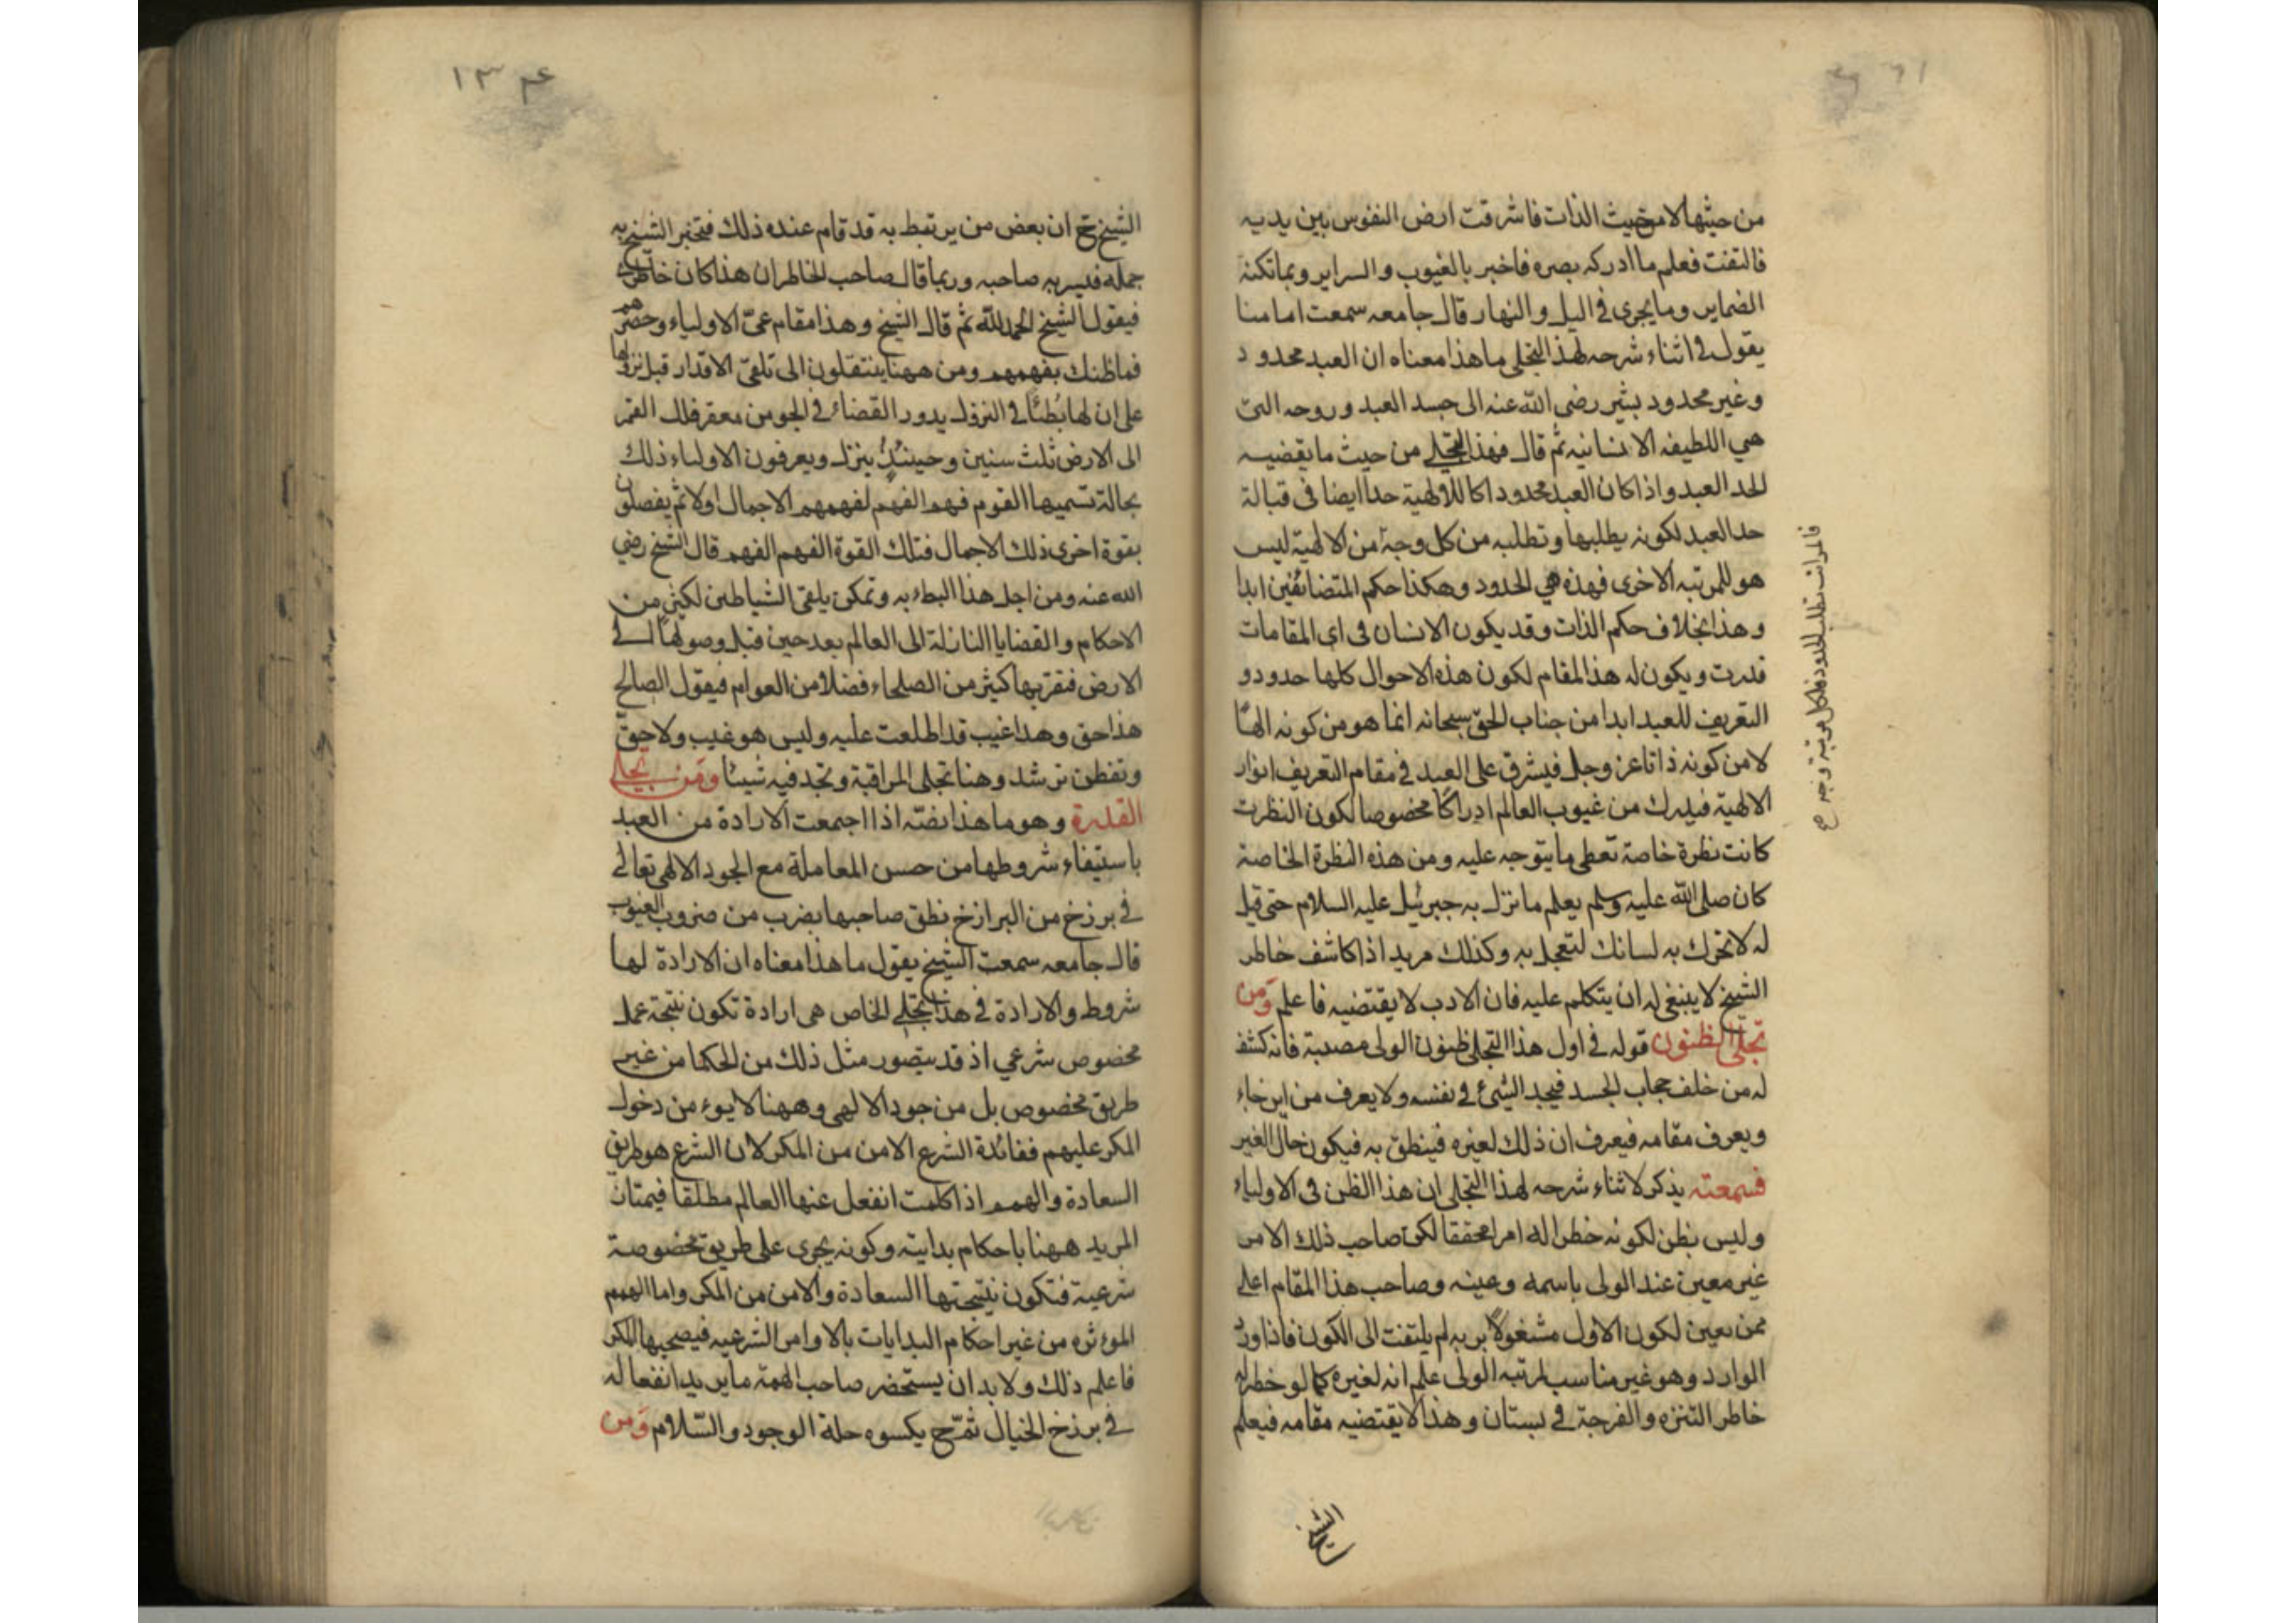 من حيثها لا من حيث الذات فاشرقت ارض النفوس بين يديه
فالتفت فعلم ما ادركه بصره فاخبر بالغيوب والسراير وبما تكنه
الضماير وما يجرى فى اليل والنهار قال جامعه سمعت امامنا
يقول فى اثناء شرحه لهذا التجلى ما هذا معناه ان العبد محدود
وغير محدود يشير رضى الله عنه الى جسد العبد وروحه التى
هي اللطيفه الانسانيه ثم قال فهذا التجلي من حيث ما يقضيه
الحد العبد واذا كان العبد محدودا كا للالهية حدا ايضا فى قبالة
حد العبد لكونه يطلبها وتطلبه من كل وجهة من الالهية ليس
هو للمرتبه الاخرى فهذه هي الحدود وهكذا حكم المتضائفين ابدا
وهذا بخلاف حكم الذات وقد يكون الانسان فى اى المقامات
قدرت ويكون له هذا المقام لكون هذه الاحوال كلها حدود و
التعريف للعبد ابدا من جناب الحق سبحانه انما هو من كونه الها
لا من كونه ذاتا عز وجل فيشرق على العبد فى مقام التعريف انوار
الالهية فيدرك من غيوب العالم ادراكا مخصوصا لكون النظرت
كانت نظرة خاصة تعطى ما يتوجه عليه ومن هذه النظرة الخاصة
كان صلى الله عليه وسلم يعلم ما نزل به جبرئيل عليه السلام حتى قيل
له لا تحرك به لسانك لتعجل به وكذلك مريد اذا كاشف خاطر
الشيخ لا ينبغى له ان يتكلم عليه فان الادب لا يقتضيه فاعلم ومن
تجلى الظنون قوله فى اول هذا التجلى ظنون الولى مصيبة فانه كشف
له من خلف حجاب الجسد فيجد الشئ فى نفسه ولا يعرف من اين جاء
ويعرف مقامه فيعرف ان ذلك لغيره فينطق به فيكون حال الغير
فسمعته يذكر لاثناء شرحه لهذا التجلى ان هذا الظن فى الاولياء
وليس بظن لكونه خطر له امرا محققا لكن صاحب ذلك الامر
غير معين عند الولى باسمه وعينه وصاحب هذا المقام اعلى
ممن يعين لكون الاول مشغولا بربه لم يلتفت الى الكون فاذا ورد
الوارد وهو غير مناسب لمرتبه الولى علم انه لغيره كما لو خطر له
خاطر التنزه والفرجة فى بستان وهذا لا يقتضيه مقامه فيعلم
فالمراتب تطلب الحدود فلكل مرتبة وجه صح
الشيخ
١٣٤
الشيخ ح ان بعض من يرتبط به قد قام عنده ذلك فتخبر الشيخ به
جملة فيسر به صاحبه وربما قال صاحب الخاطر ان هذا كان خاطرى
فيقول الشيخ الحمد لله ثم قال الشيخ وهذا مقام عمى الاولياء وحصرهم
فما ظنك بفهمهم ومن ههنا ينتقلون الى تلقى الاقدار قبل نزولها
على ان لها بُطئًا فى النزول يدور القضاء فى الجو من مقعر فلك القمر
الى الارض ثلث سنين وحينئذٍ ينزل ويعرفون الاولياء ذلك
بحالة تسميها القوم فهم الفهم لفهمهم الاجمال اولا ثم يفصلون
بقوة اخرى ذلك الاجمال فتلك القوة الفهم الفهم قال الشيخ رضي
الله عنه ومن اجل هذا البطء به وتمكن يلقى الشياطين لكثير من
الاحكام والقضايا النازلة الى العالم بعد حين قبل وصولها الى
الارض فتقر بها كثير من الصلحاء فضلا من العوام فيقول الصالح
هذا حق وهذا غيب قد اطلعت عليه وليس هو غيب ولا حق
وتفطن ترشد وهنا تجلى المراقبة وتجد فيه شيئا ومن تجلى
القدرة وهو ما هذا نصّه اذا اجتمعت الارادة من العبد
باستيفاء شروطها من حسن المعاملة مع الجود الالهى تعالى
فى برزخ من البرازخ نطق صاحبها بضرب من ضروب الغيوب
قال جامعه سمعت الشيخ يقول ما هذا معناه ان الارادة لها
شروط والارادة فى هذا التجلي الخاص هى ارادة تكون نتيجة عمل
مخصوص شرعي اذ قد يتصور مثل ذلك من الحكما من غير
طريق مخصوص بل من جود الالهى وههنا لا يوء من دخول
المكر عليهم ففائدة الشرع الامن من المكر لان الشرع هو طريق
السعادة والهمم اذا كلمت انفعل عنها العالم مطلقا فيمتاز
المريد ههنا باحكام بدايته وكونه يجرى على طريق مخصوصة
شرعية فتكون نتيجتها السعادة والامن من المكر واما الهمم
الموءثره من غير احكام البدايات بالاوامر الشرعيه فيصحبها المكر
فاعلم ذلك ولا بد ان يستحضر صاحب الهمة ما يريد انفعاله
فى برزخ الخيال ثم ح يكسوه حلة الوجود والسّلام وَمن